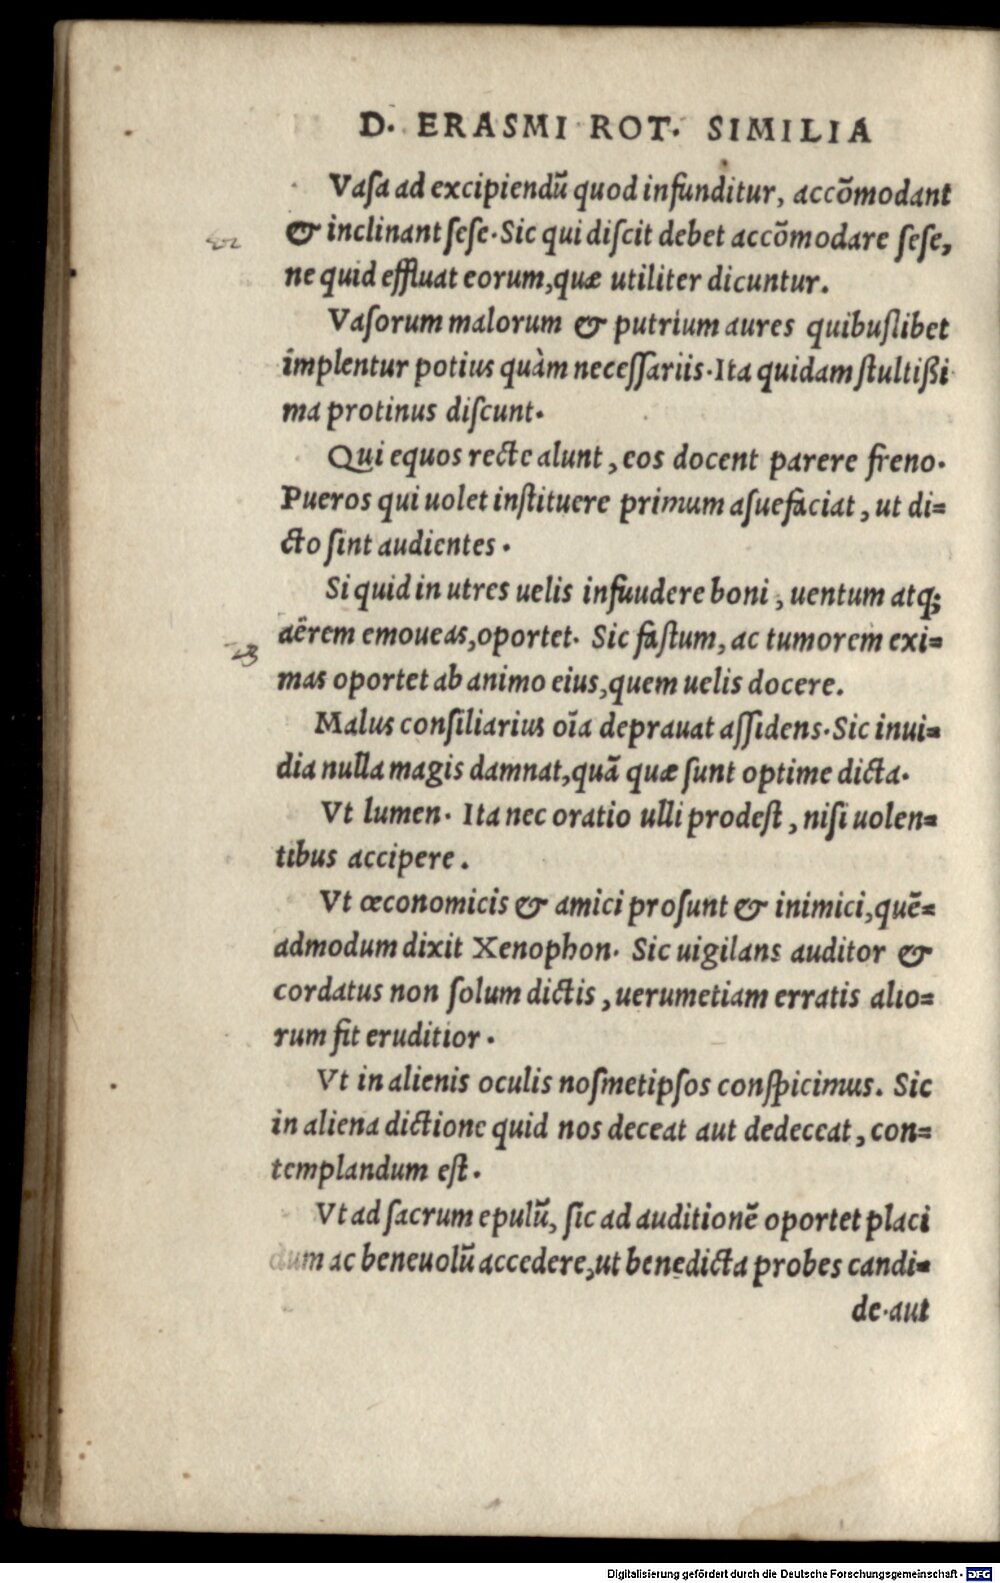 D. ERASMI ROT. SIMILIA
Vaſa ad excipiendũ quod infunditur, accõmodant
& inclinant ſeſe. Sic qui diſcit debet accõmodare ſeſe,
ne quid effluat eorum, quæ utiliter dicuntur.
Vaſorum malorum & putrium aures quibuſlibet
implentur potius quàm neceſſariis. Ita quidam ſtultißi
ma protinus diſcunt.
Qui equos recte alunt, eos docent parere freno.
Pueros qui uolet inſtituere primum aſuefaciat, ut di=
cto ſint audientes.
Si quid in utres uelis infuudere boni, uentum atq;
aërem emoueas, oportet. Sic faſtum, ac tumorem exi=
mas oportet ab animo eius, quem uelis docere.
Malus conſiliarius oĩa deprauat aſſidens. Sic inui=
dia nulla magis damnat, quã quæ ſunt optime dicta.
Vt lumen. Ita nec oratio ulli prodeſt, niſi uolen=
tibus accipere.
Vt œconomicis & amici proſunt & inimici, quẽ=
admodum dixit Xenophon. Sic uigilans auditor &
cordatus non ſolum dictis, uerumetiam erratis alio=
rum fit eruditior.
Vt in alienis oculis noſmetipſos conſpicimus. Sic
in aliena dictione quid nos deceat aut dedeceat, con=
templandum eſt.
Vt ad ſacrum epulũ, ſic ad auditionẽ oportet placi
dum ac beneuolũ accedere, ut benedicta probes candi=
de. aut
Digitalisierung gefördert durch die Deutsche Forschungsgemeinschaft - DFG